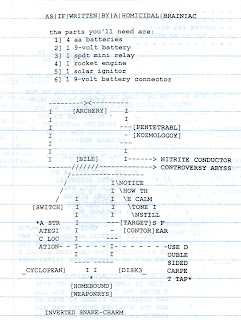 AS|IF|WRITTEN|BY|A|HOMICIDAL|BRAINIAC
the parts you'll need are:
1] 4 aa batteries
2] 1 9-volt battery
3] 1 spdt mini relay
4] 1 rocket engine
5] 1 solar ignitor
6] 1 9-volt battery connector
--------><--------
I [ARCHERY] I
I I
I I---[PENTETRABL]
I I---[KOZMOLOGOY]
I I
I [BILE] I------> NITRITE CONDUCTOR
I-----///////------------> CONTROVERSY ABYSS
I\NOTICE
I \HOW TH
I \E CALM
I \TONE I
I \NSTILL
[SWITCH]
*A STR ---[TARGET]S F
ATEGI I [CONTOR]EAR
C LOC I
ATION-- -USE D
OUBLE
SIDED
_CYCLOPEAN] I I [DISKS]_ CARPE
T TAP*
[HOMEBOUND]
[WEAPONRYS]
INVERTED SNAKE-CHARM